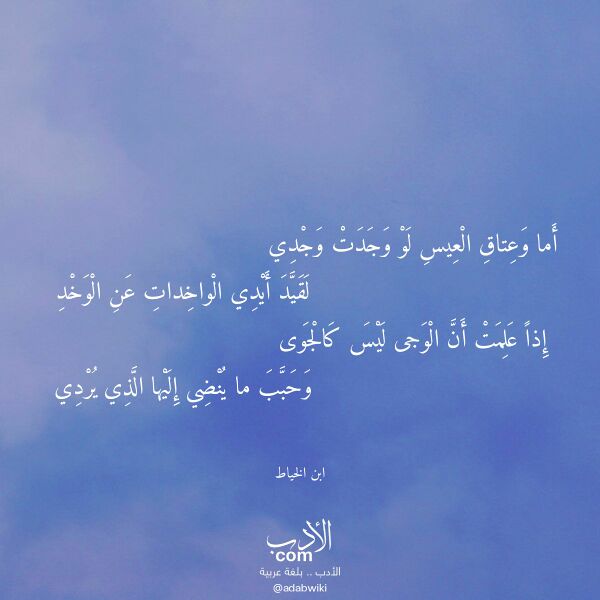 أَما وَعِتاقِ الْعِيسِ لَوْ وَجَدَتْ وَجْدِي
لَقَيَّدَ أَيْدِي الْواخِداتِ عَنِ الْوَخْدِ
إِذاً عَلِمَتْ أَنَّ الْوَجى لَيْسَ كَالْجَوَى
وَحَبَّبَ ما يُنْضِي إِلَيْها الَّذِي يُرْدِي
ابن الخياط
الأدب
com
الأدب .. بلغة عربية
@adabwiki